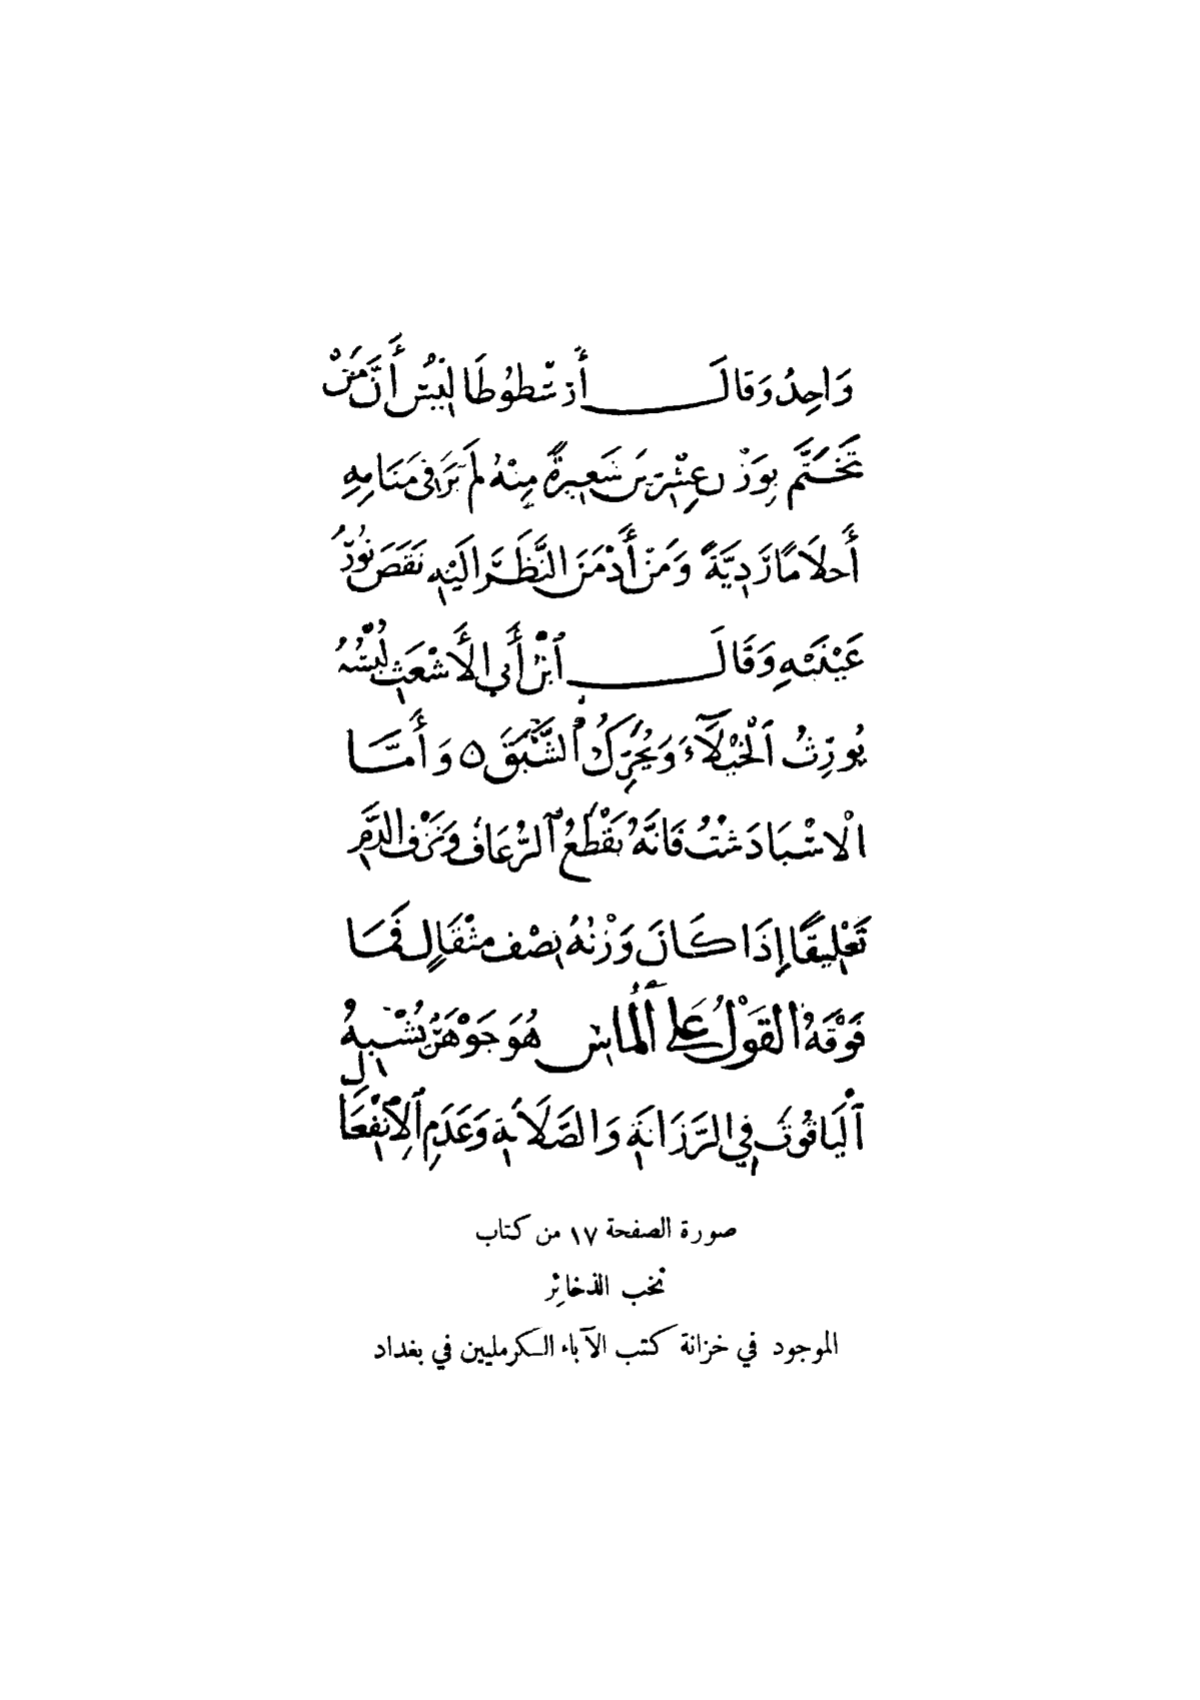 وَاحِدُ وَقَالَ أَرَسْطُوطَالِيسُ أَنَّ مَنْ
تَخَتَّمَ بِوَزْنِ عِشْرِينَ شَعِيرَةً مِنْهُ لَمْ يَرَ فِى مَنَامِهِ
أَحلَامًا رَدِيَّةً وَمَنْ أَدْمَنَ النَّظَرَ اليْهِ نَقَصَ نُورُ
عَيْنَيْهِ وَقَالَ ٱبْنُ أَبِى الأَشْعَثِ لُبْسُهُ
يُورِثُ ٱلْخُيَلَآءَ وَيُحَرِّكُ ٱلشَّبَقَ ه وَأَمَّا
الْاسْبَادَشْتُ فَانَّهُ يَقْطَعُ ٱلرُّعَافَ وَنَزْفَ الدَّمِ
تَعْلِيقًا إِذَا كَانَ وَزْنُهُ نِصْفَ مثْقَالٍ فَمَا
فَوْقَهُ القَوْلُ عَلَى ٱلْمَاسِ هُوَ جَوْهَرٌ يُشْبِهُ
ٱلْيَاقُوتَ فِي الرَّزَانَةِ وَالصَّلَابَةِ وَعَدَمِ ٱلِٱنْفِعَال
صورة الصفحة ١٧ من كتاب
نخب الذخائر
الموجود في خزانة كتب الآباء الكرمليين في بغداد